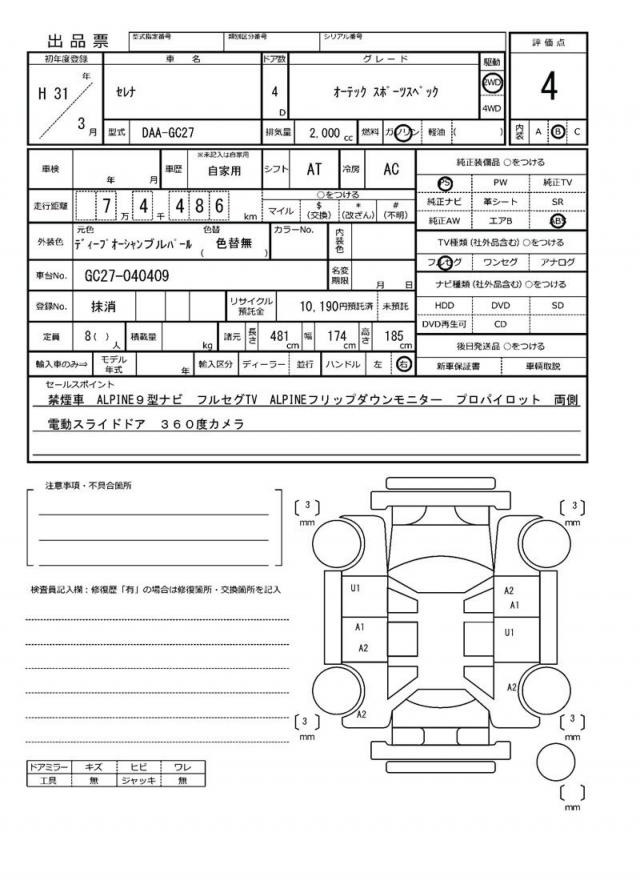 出品票 型式指定番号 類別区分番号 シリアル番号 評価点
初年度登録 車名 ドア数 グレード 駆動
H 31 年 セレナ 4 D オーテック スポーツスペック 2WD 4
3 月 4WD
型式 DAA-GC27 排気量 2,000 cc 燃料 ガソリン 軽油 ( ) 内装 A B C
車検 年 月 車歴 ※未記入は自家用 自家用 シフト AT 冷房 AC 純正装備品 ○をつける
PS PW 純正TV
走行距離 7 万 4 千 4 8 6 km ○をつける マイル $ (交換) * (改ざん) # (不明) 純正ナビ 革シート SR
純正AW エアB ABS
外装色 元色 ディープオーシャンブルパール 色替 ( 色替無 ) カラーNo. 内装色 TV種類 (社外品含む) ○をつける
フルセグ ワンセグ アナログ
車台No. GC27-040409 名変期限 月 日 ナビ種類 (社外品含む) ○をつける
登録No. 抹消 リサイクル預託金 10,190円預託済 未預託 HDD DVD SD
DVD再生可 CD
定員 8( ) 人 積載量 kg 諸元 長さ 481 cm 幅 174 cm 高さ 185 cm 後日発送品 ○をつける
輸入車のみ⇒ モデル年式 年 輸入区分 ディーラー 並行 ハンドル 左 右 新車保証書 車輌取説
セールスポイント
禁煙車 ALPINE9型ナビ フルセグTV ALPINEフリップダウンモニター プロパイロット 両側
電動スライドドア 360度カメラ
注意事項・不具合箇所
[ 3 ] mm [ 3 ] mm
検査員記入欄：修復歴「有」の場合は修復箇所・交換箇所を記入
U1 A2
A1
A1 U1
A2
A2
A2
[ 3 ] mm [ 3 ] mm
ドアミラー キズ ヒビ ワレ
工具 無 ジャッキ 無
[ ] mm